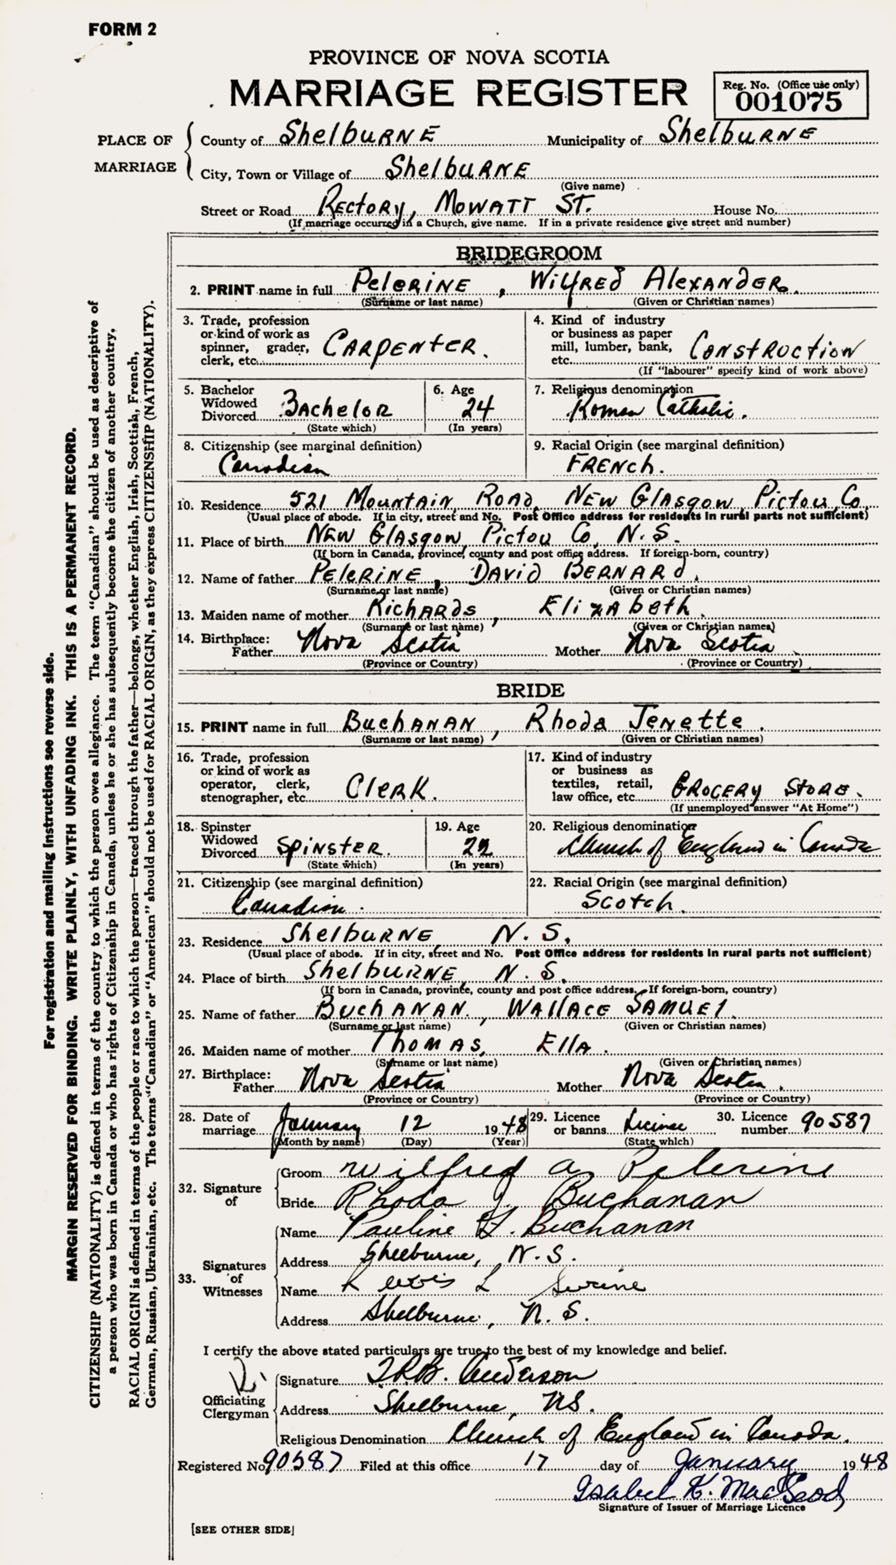 FORM 2
PROVINCE OF NOVA SCOTIA
MARRIAGE REGISTER
Reg. No. (Office use only)
001075
PLACE OF MARRIAGE
County of Shelburne Municipality of Shelburne
City, Town or Village of Shelburne
(Give name)
Street or Road Rectory, Mowatt St. House No.
(If marriage occurred in a Church, give name. If in a private residence give street and number)
BRIDEGROOM
2. PRINT name in full Pelerine, Wilfred Alexander.
(Surname or last name) (Given or Christian names)
3. Trade, profession or kind of work as spinner, grader, clerk, etc. Carpenter.
4. Kind of industry or business as paper mill, lumber, bank, etc. Construction
(If "labourer" specify kind of work above)
5. Bachelor Widowed Divorced Bachelor
(State which)
6. Age 24
(In years)
7. Religious denomination
Roman Catholic.
8. Citizenship (see marginal definition)
Canadian
9. Racial Origin (see marginal definition)
French.
10. Residence 521 Mountain Road, New Glasgow, Pictou Co.
(Usual place of abode. If in city, street and No. Post Office address for residents in rural parts not sufficient)
11. Place of birth New Glasgow, Pictou Co, N.S.
(If born in Canada, province, county and post office address. If foreign-born, country)
12. Name of father Pelerine, David Bernard.
(Surname or last name) (Given or Christian names)
13. Maiden name of mother Richards, Elizabeth.
(Surname or last name) (Given or Christian names)
14. Birthplace: Father Nova Scotia Mother Nova Scotia
(Province or Country) (Province or Country)
BRIDE
15. PRINT name in full Buchanan, Rhoda Jenette.
(Surname or last name) (Given or Christian names)
16. Trade, profession or kind of work as operator, clerk, stenographer, etc. Clerk.
17. Kind of industry or business as textiles, retail, law office, etc. Grocery Store.
(If unemployed answer "At Home")
18. Spinster Widowed Divorced Spinster.
(State which)
19. Age 22
(In years)
20. Religious denomination
Church of England in Canada
21. Citizenship (see marginal definition)
Canadian.
22. Racial Origin (see marginal definition)
Scotch.
23. Residence Shelburne, N.S.
(Usual place of abode. If in city, street and No. Post Office address for residents in rural parts not sufficient)
24. Place of birth Shelburne, N.S.
(If born in Canada, province, county and post office address. If foreign-born, country)
25. Name of father Buchanan, Wallace Samuel
(Surname or last name) (Given or Christian names)
26. Maiden name of mother Thomas, Ella.
(Surname or last name) (Given or Christian names)
27. Birthplace: Father Nova Scotia Mother Nova Scotia.
(Province or Country) (Province or Country)
28. Date of marriage January 12 1948
(Month by name) (Day) (Year)
29. Licence or banns License
(State which)
30. Licence number 90587
32. Signature of
Groom Wilfred A Pelerine
Bride Rhoda J Buchanan
33. Signatures of Witnesses
Name Pauline Buchanan
Address Shelburne, N.S.
Name L
Address Shelburne, N.S.
I certify the above stated particulars are true to the best of my knowledge and belief.
Officiating Clergyman
Signature Anderson
Address Shelburne, NS.
Religious Denomination Church of England in Canada.
Registered No. 90587 Filed at this office 17 day of January 1948
Isabel K. MacLeod
Signature of Issuer of Marriage Licence
[SEE OTHER SIDE]
For registration and mailing instructions see reverse side.
MARGIN RESERVED FOR BINDING. WRITE PLAINLY, WITH UNFADING INK. THIS IS A PERMANENT RECORD.
CITIZENSHIP (NATIONALITY) is defined in terms of the country to which the person owes allegiance. The term "Canadian" should be used as descriptive of
a person who was born in Canada or who has rights of Citizenship in Canada, unless he or she has subsequently become the citizen of another country.
RACIAL ORIGIN is defined in terms of the people or race to which the person—traced through the father—belongs, whether English, Irish, Scottish, French,
German, Russian, Ukrainian, etc. The terms "Canadian" or "American" should not be used for RACIAL ORIGIN, as they express CITIZENSHIP (NATIONALITY).